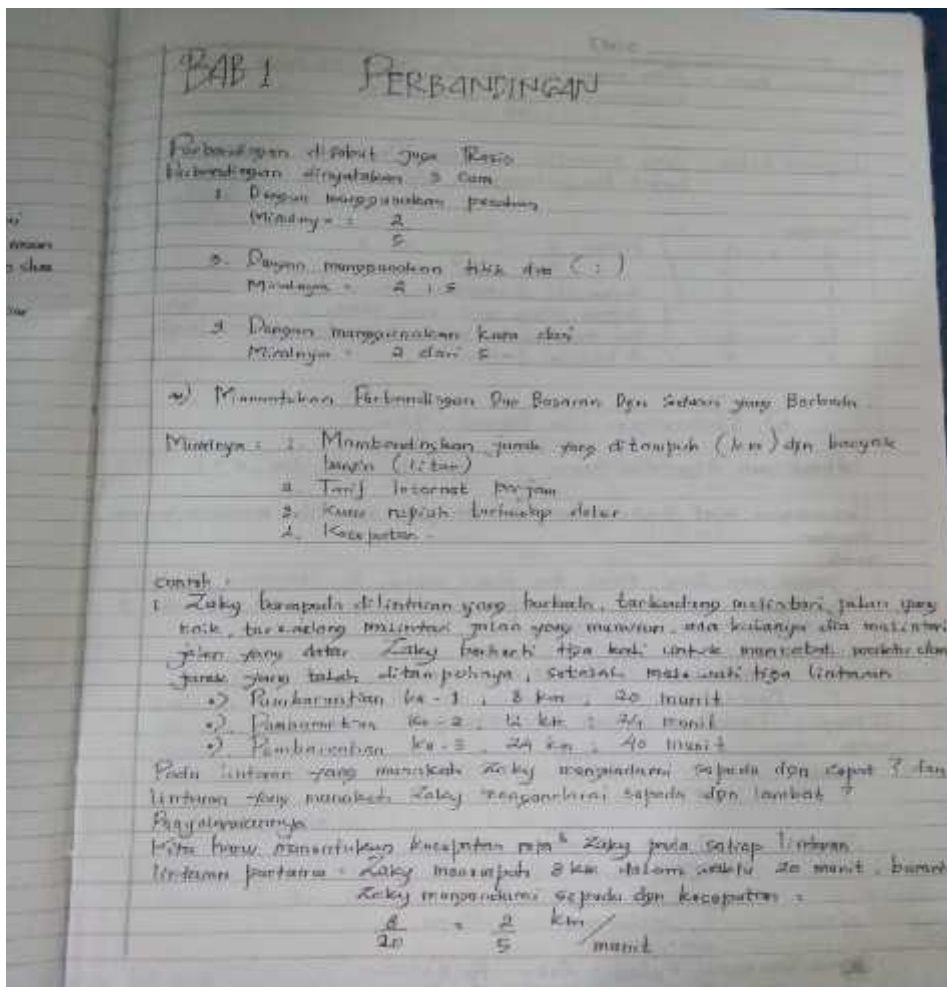 BAB 1 PERBANDINGAN
Perbandingan disebut juga Rasio
Perbandingan dinyatakan 3 Cara
1. Dengan menggunakan pecahan
Misalnya : 2/5
2. Dengan menggunakan titik dua ( : )
Misalnya : 2 : 5
3. Dengan menggunakan kata dari
Misalnya : 2 dari 5
Menentukan Perbandingan Dua Besaran Dgn Satuan yang Berbeda
Misalnya : 1. Membandingkan jarak yang ditempuh (km) dgn banyak
bensin (liter)
2. Tarif Internet perjam
3. Kurs rupiah terhadap dolar
4. Kecepatan
Contoh :
1 Zaky bersepeda dilintasan yang berbeda, terkadang melintasi jalan yang
naik, terkadang melintasi jalan yang menurun, ada kalanya dia melintasi
jalan yang datar. Zaky berhenti tiga kali untuk mencatat waktu dan
jarak yang telah ditempuhnya, setelah melewati tiga lintasan
•) Pemberhentian ke - 1 ; 8 km ; 20 menit
•) Pemberhentian ke - 2 ; 12 km ; 24 menit
•) Pemberhentian ke - 3 ; 24 km ; 40 menit
Pada lintasan yang manakah Zaky mengendarai sepeda dgn cepat ? dan
lintasan yang manakah Zaky mengendarai sepeda dgn lambat ?
Penyelesaiannya
Kita harus menentukan kecepatan rata² Zaky pada setiap lintasan
lintasan pertama : Zaky menempuh 8 km dalam waktu 20 menit, berarti
Zaky mengendarai sepeda dgn kecepatan :
8/20 = 2/5 km/menit